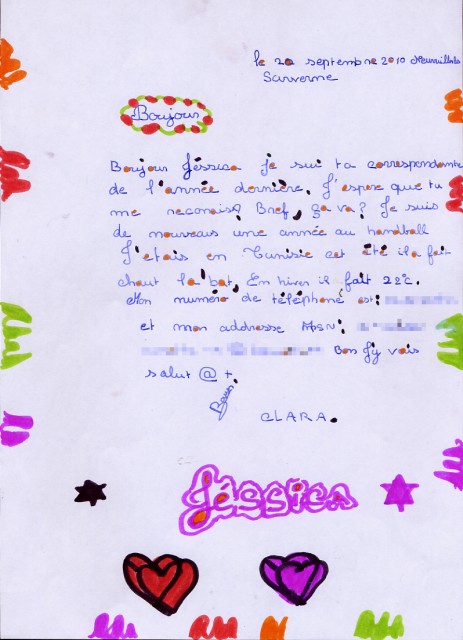 le 20 septembre 2010
Sauverne
Boujour
Boujour Jéssica je suis ta correspondante
de l'année dernière. J'espère que tu
me reconais? Bref, ça va? Je suis
de nouveaus une année au handball
J'etais en Tunisie cet été il a fait
chaut la bat. En hiver il fait 22°c.
Mon numéro de téléphone est:
et mon addresse MSN:
Bon J'y vais
salut @ +.
CLARA.
Jéssica